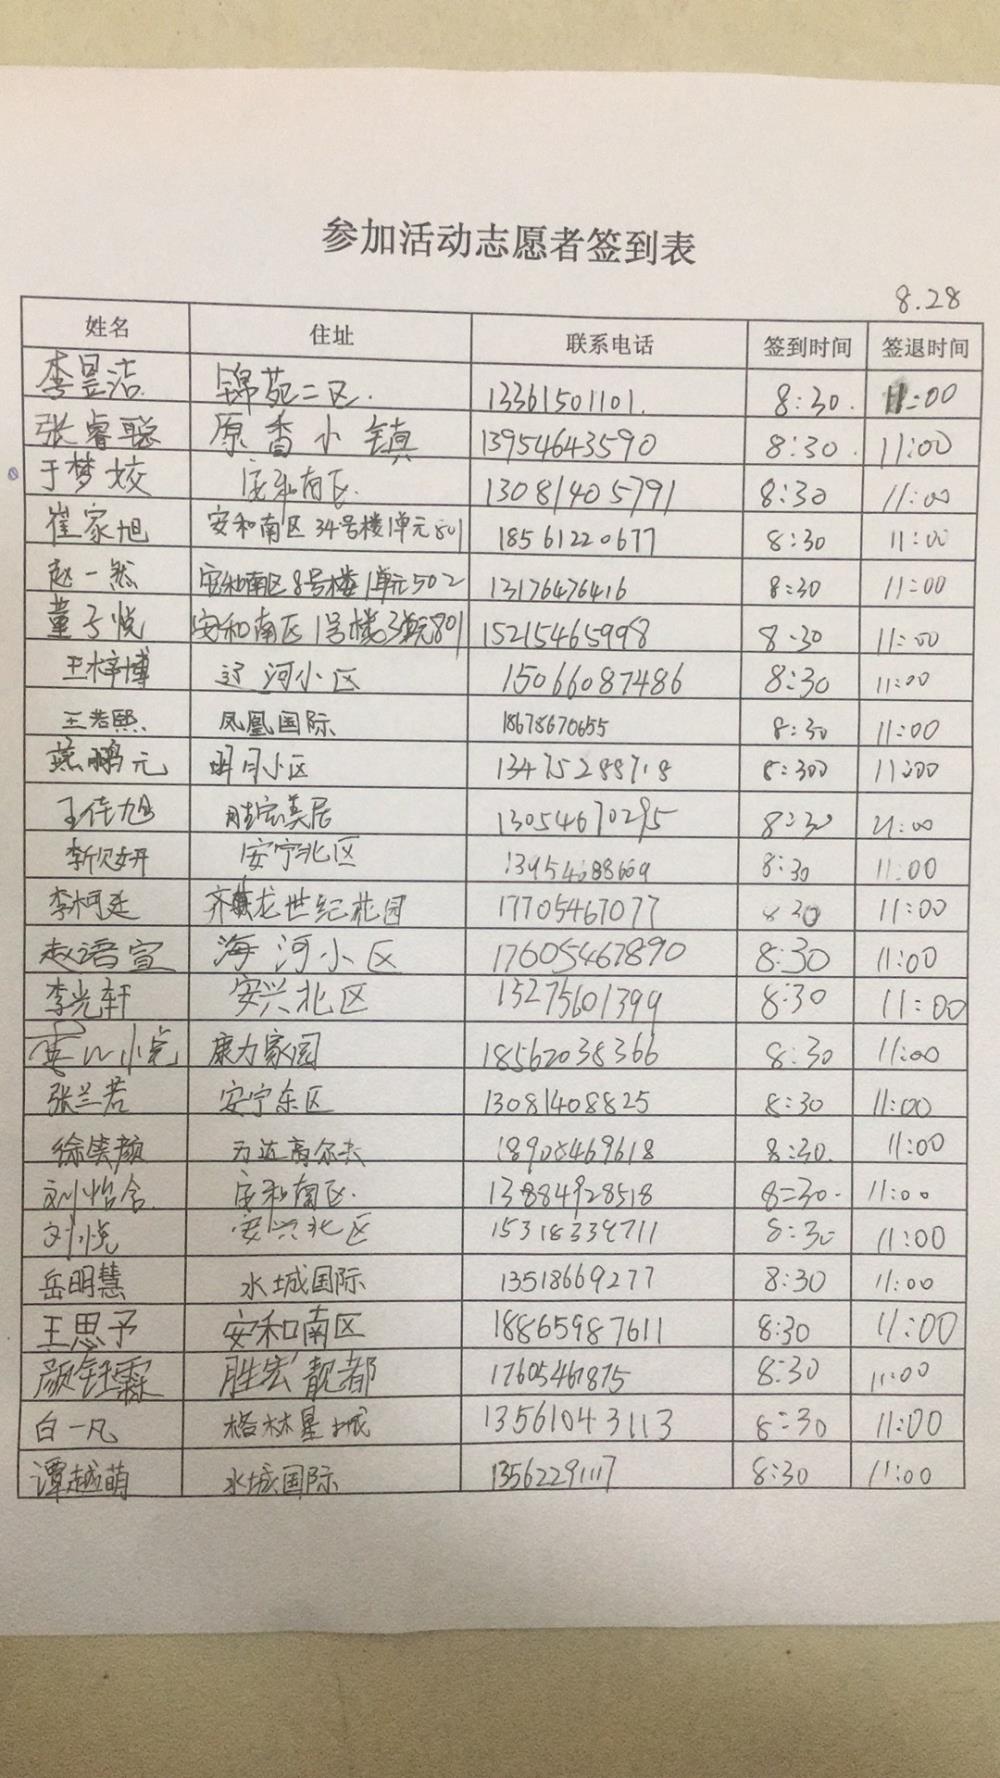 参加活动志愿者签到表
8.28
姓名 住址 联系电话 签到时间 签退时间
李昱洁. 锦苑二区. 13361501101. 8:30. 11:00
张睿聪 原香小镇 13954643590 8:30. 11:00
于梦姣 安和南区. 13081405791 8:30 11:00
崔家旭 安和南区34号楼1单元801 18561220677 8:30 11:00
赵一然 安和南区8号楼1单元502 13176476416 8:30 11:00
董子悦 安和南区1号楼3单元801 15215465998 8:30 11:00
王梓博 辽河小区 15066087486 8:30 11:00
王若熙. 凤凰国际 18678670655 8:30 11:00
燕鹏元 明月小区 13475288718 8:300 11:00
王佳旭 胜宏美居 13054670295 8:30 11:00
李欣妍 安宁北区 13954688669 8:30 11:00
李柯延 龙世纪花园 17705467077 8:30 11:00
赵语宣 海河小区 17605467890 8:30 11:00
李光轩 安兴北区 15275601399 8:30 11:00
康力家园 18562038366 8:30 11:00
张兰若 安宁东区 13081408825 8:30 11:00
徐笑颜 万达高尔夫 18905469618 8:30. 11:00
刘怡含. 安和南区. 13884928518 8:30. 11:00
刘悦 安兴北区 15318334711 8:30 11:00
岳明慧 水城国际 13518669277 8:30 11:00
王思予 安和南区 18865987611 8:30 11:00
颜钰霖 胜宏靓都 17605467875 8:30 11:00
白一凡 格林星城 13561043113 8:30 11:00
谭越萌 水城国际 13562291117 8:30 11:00